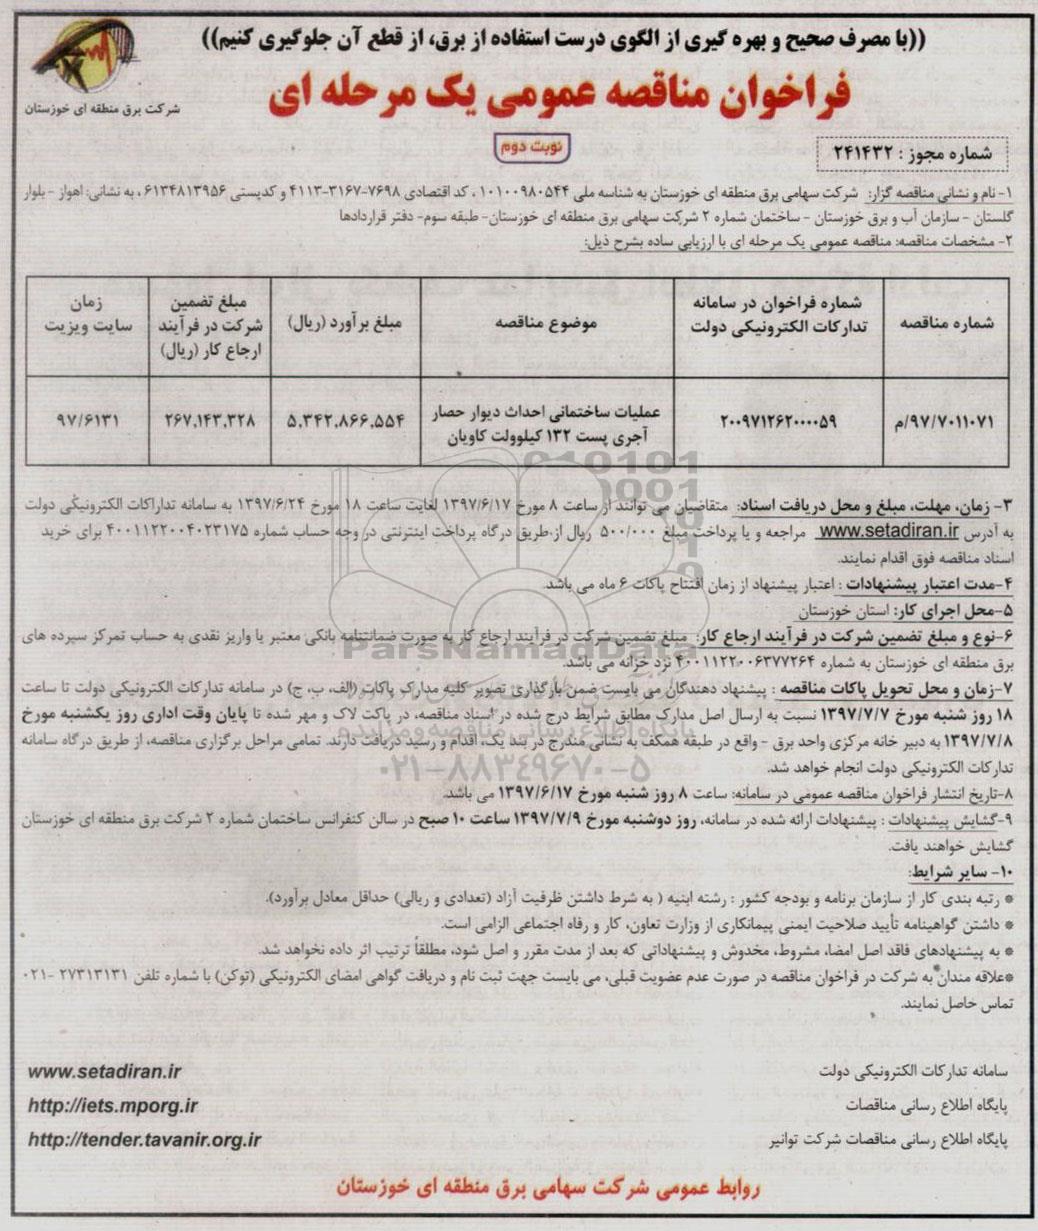 ((با مصرف صحیح و بهره گیری از الگوی درست استفاده از برق، از قطع آن جلوگیری کنیم))
فراخوان مناقصه عمومی یک مرحله ای
شرکت برق منطقه ای خوزستان
نوبت دوم
شماره مجوز : ۲۴۱۴۳۲
۱- نام و نشانی مناقصه گزار: شرکت سهامی برق منطقه ای خوزستان به شناسه ملی ۱۰۱۰۰۹۸۰۵۴۴ ، کد اقتصادی ۷۶۹۸-۳۱۶۷-۴۱۱۳ و کدپستی ۶۱۳۴۸۱۳۹۵۶ ، به نشانی: اهواز - بلوار
گلستان - سازمان آب و برق خوزستان - ساختمان شماره ۲ شرکت سهامی برق منطقه ای خوزستان- طبقه سوم- دفتر قراردادها
۲- مشخصات مناقصه: مناقصه عمومی یک مرحله ای با ارزیابی ساده بشرح ذیل:
شماره مناقصه
شماره فراخوان در سامانه
تدارکات الکترونیکی دولت
موضوع مناقصه
مبلغ برآورد (ریال)
مبلغ تضمین
شرکت در فرآیند
ارجاع کار (ریال)
زمان
سایت ویزیت
۹۷/۷۰۱۱۰۷۱/م
۲۰۰۹۷۱۲۶۲۰۰۰۰۵۹
عملیات ساختمانی احداث دیوار حصار
آجری پست ۱۳۲ کیلوولت کاویان
۵,۳۴۲,۸۶۶,۵۵۴
۲۶۷,۱۴۳,۳۲۸
۹۷/۶۱۳۱
۳- زمان، مهلت، مبلغ و محل دریافت اسناد: متقاضیان می توانند از ساعت ۸ مورخ ۱۳۹۷/۶/۱۷ لغایت ساعت ۱۸ مورخ ۱۳۹۷/۶/۲۴ به سامانه تداراکات الکترونیکی دولت
به آدرس www.setadiran.ir مراجعه و یا پرداخت مبلغ ۵۰۰/۰۰۰ ریال از طریق درگاه پرداخت اینترنتی در وجه حساب شماره ۴۰۰۱۱۲۲۰۰۴۰۲۳۱۷۵ برای خرید
اسناد مناقصه فوق اقدام نمایند.
۴-مدت اعتبار پیشنهادات : اعتبار پیشنهاد از زمان افتتاح پاکات ۶ ماه می باشد.
۵-محل اجرای کار: استان خوزستان
۶-نوع و مبلغ تضمین شرکت در فرآیند ارجاع کار: مبلغ تضمین شرکت در فرآیند ارجاع کار به صورت ضمانتنامه بانکی معتبر یا واریز نقدی به حساب تمرکز سپرده های
برق منطقه ای خوزستان به شماره ۴۰۰۱۱۲۲۰۰۶۳۷۷۲۶۴ نزد خزانه می باشد.
۷-زمان و محل تحویل پاکات مناقصه : پیشنهاد دهندگان می بایست ضمن بارگذاری تصویر کلیه مدارک پاکات (الف، ب، ج) در سامانه تدارکات الکترونیکی دولت تا ساعت
۱۸ روز شنبه مورخ ۱۳۹۷/۷/۷ نسبت به ارسال اصل مدارک مطابق شرایط درج شده در اسناد مناقصه، در پاکت لاک و مهر شده تا پایان وقت اداری روز یکشنبه مورخ
۱۳۹۷/۷/۸ به دبیر خانه مرکزی واحد برق - واقع در طبقه همکف به نشانی مندرج در بند یک، اقدام و رسید دریافت دارند. تمامی مراحل برگزاری مناقصه، از طریق درگاه سامانه
تدارکات الکترونیکی دولت انجام خواهد شد.
۸-تاریخ انتشار فراخوان مناقصه عمومی در سامانه: ساعت ۸ روز شنبه مورخ ۱۳۹۷/۶/۱۷ می باشد.
۹-گشایش پیشنهادات : پیشنهادات ارائه شده در سامانه، روز دوشنبه مورخ ۱۳۹۷/۷/۹ ساعت ۱۰ صبح در سالن کنفرانس ساختمان شماره ۲ شرکت برق منطقه ای خوزستان
گشایش خواهند یافت.
۱۰- سایر شرایط:
* رتبه بندی کار از سازمان برنامه و بودجه کشور : رشته ابنیه ( به شرط داشتن ظرفیت آزاد (تعدادی و ریالی) حداقل معادل برآورد).
* داشتن گواهینامه تأیید صلاحیت ایمنی پیمانکاری از وزارت تعاون، کار و رفاه اجتماعی الزامی است.
* به پیشنهادهای فاقد اصل امضا، مشروط، مخدوش و پیشنهاداتی که بعد از مدت مقرر و اصل شود، مطلقاً ترتیب اثر داده نخواهد شد.
*علاقه مندان به شرکت در فراخوان مناقصه در صورت عدم عضویت قبلی، می بایست جهت ثبت نام و دریافت گواهی امضای الکترونیکی (توکن) با شماره تلفن ۲۷۳۱۳۱۳۱ -۰۲۱
تماس حاصل نمایند.
سامانه تدارکات الکترونیکی دولت www.setadiran.ir
پایگاه اطلاع رسانی مناقصات http://iets.mporg.ir
پایگاه اطلاع رسانی مناقصات شرکت توانیر http://tender.tavanir.org.ir
روابط عمومی شرکت سهامی برق منطقه ای خوزستان
ParsNamadData
پایگاه اطلاع رسانی مناقصه و مزایده
۰۲۱-۸۸۳۴۹۶۷۰-۵